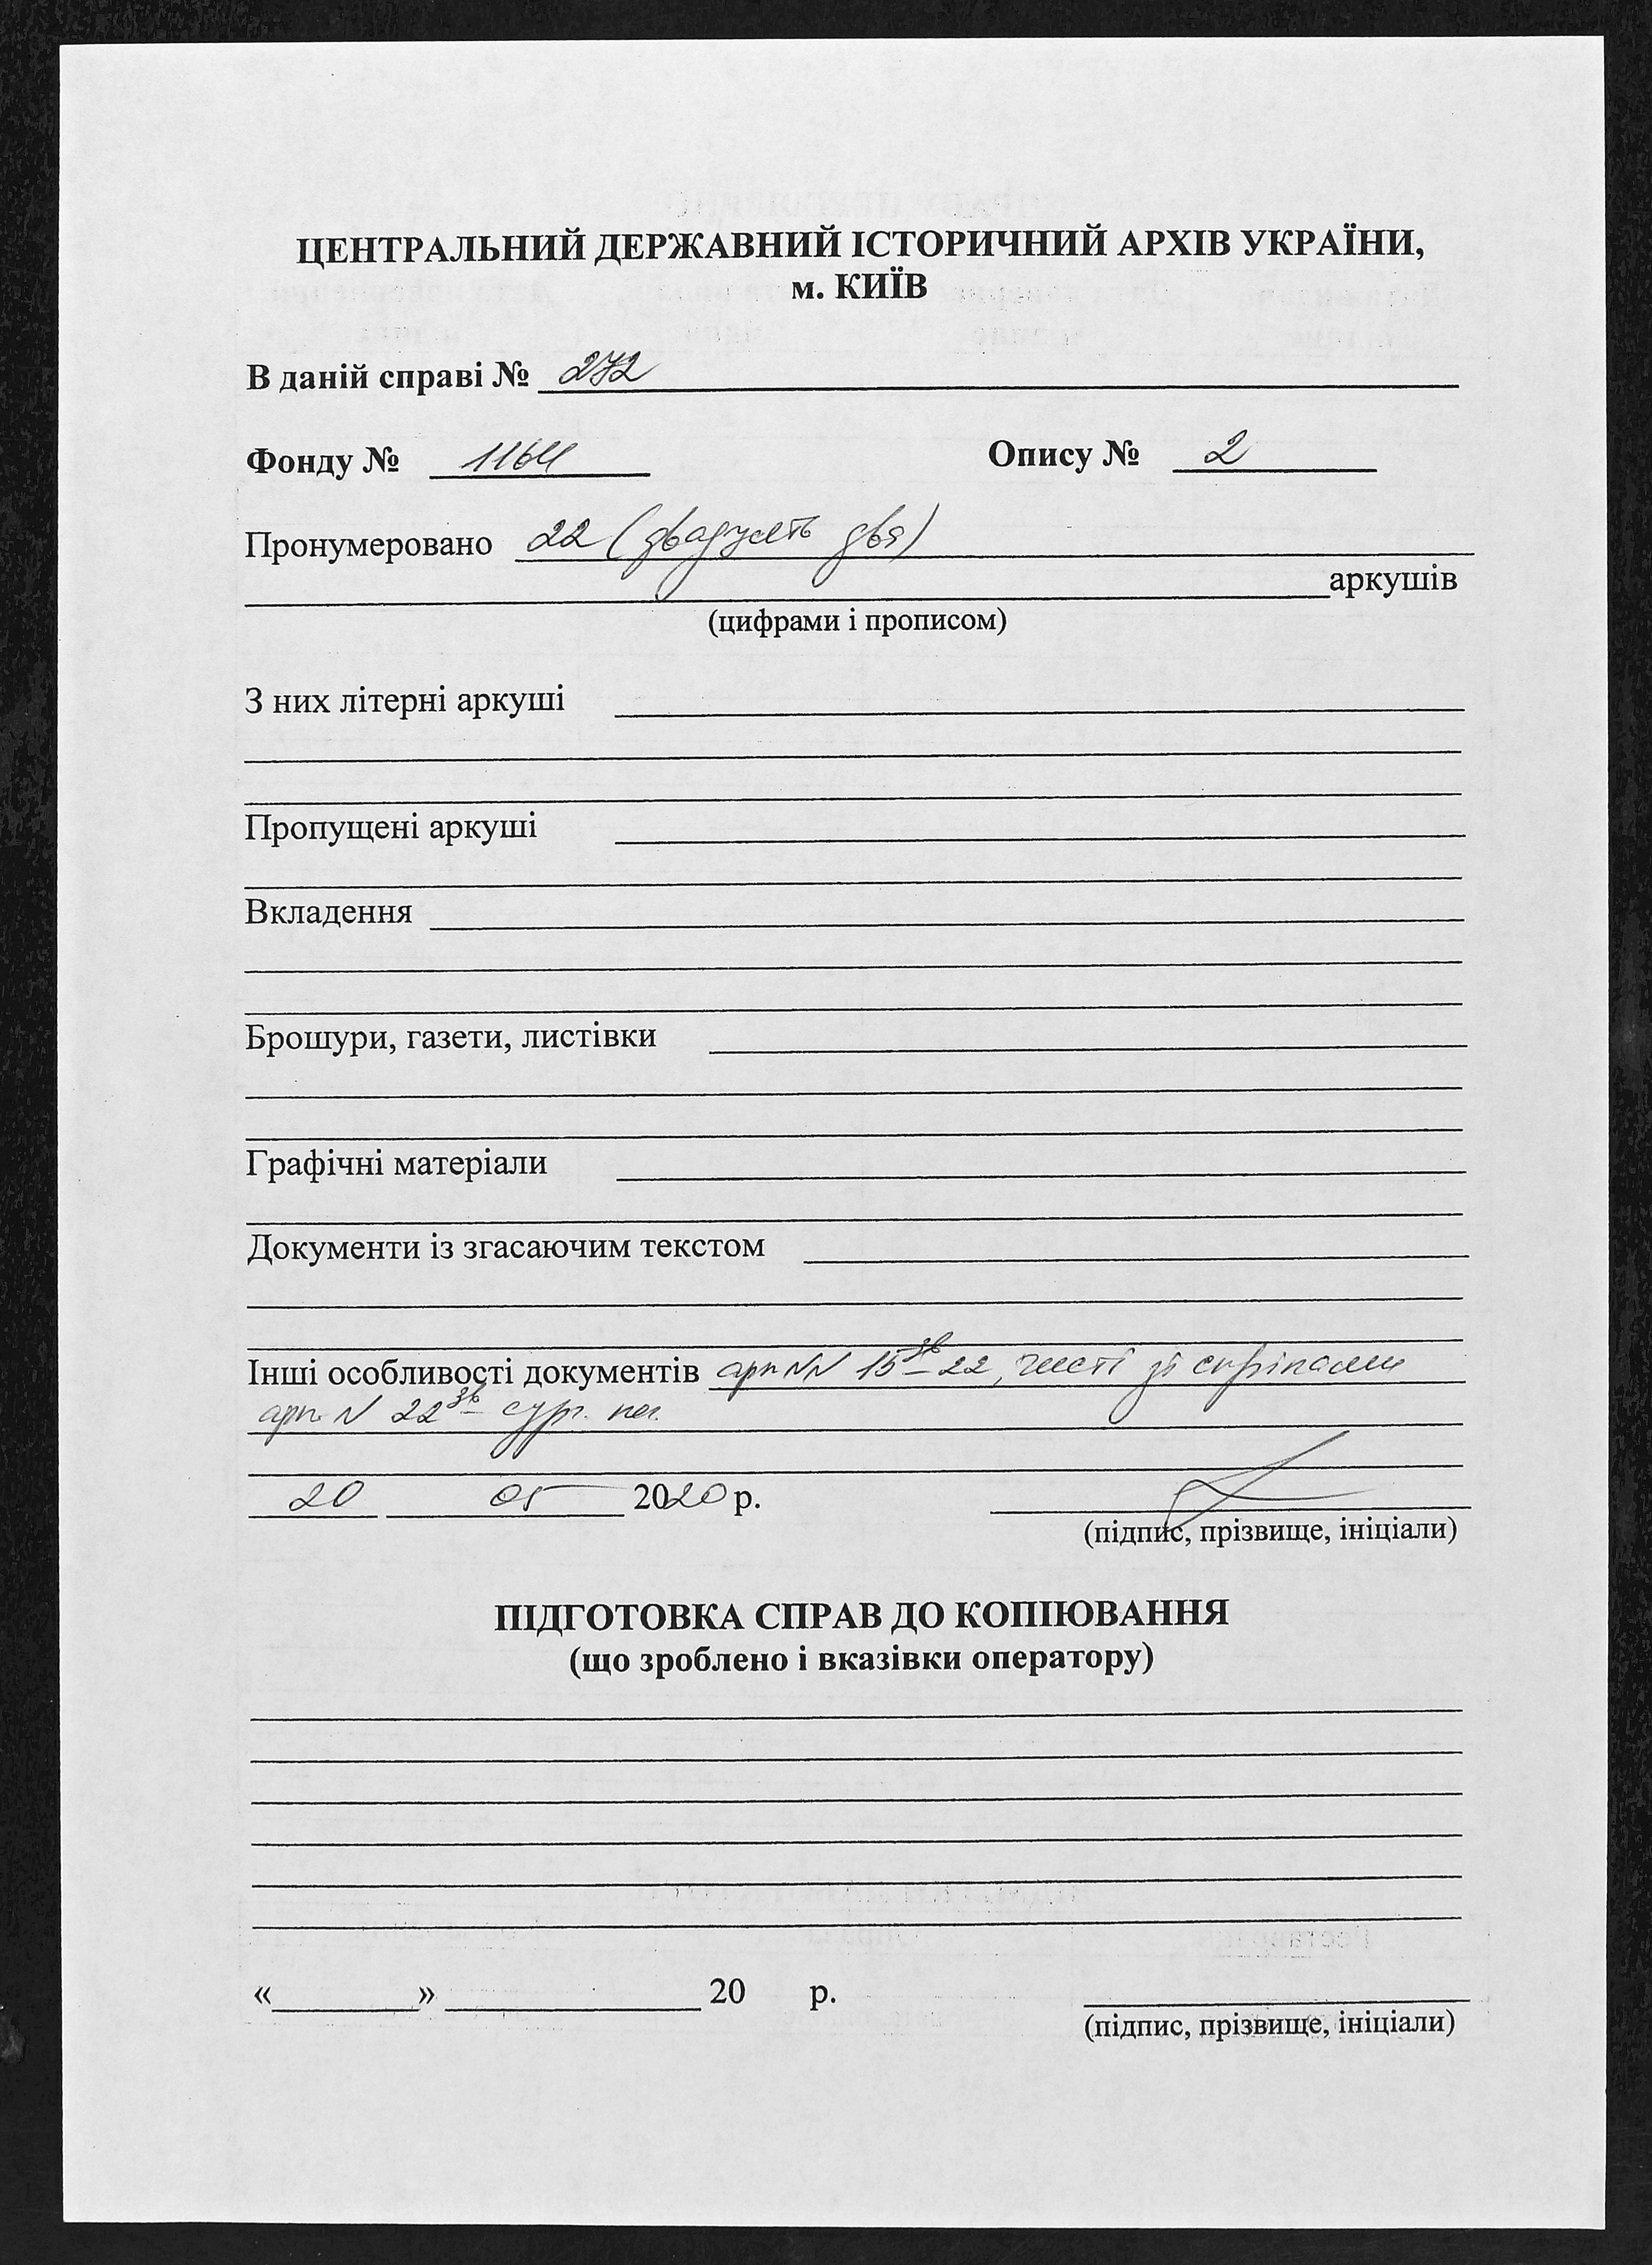 ЦЕНТРАЛЬНИЙ ДЕРЖАВНИЙ ІСТОРИЧНИЙ АРХІВ УКРАЇНИ,
м. КИЇВ
В даній справі № 272
Фонду № 1164 Опису № 2
Пронумеровано 22 (двадцять два)
аркушів
(цифрами і прописом)
З них літерні аркуші
Пропущені аркуші
Вкладення
Брошури, газети, листівки
Графічні матеріали
Документи із згасаючим текстом
Інші особливості документів арк NN 15зв-22, чисті зі скріпами
арк. N 22зв сург. печ.
20 05 2020 р.
(підпис, прізвище, ініціали)
ПІДГОТОВКА СПРАВ ДО КОПІЮВАННЯ
(що зроблено і вказівки оператору)
«    »     20   р.
(підпис, прізвище, ініціали)